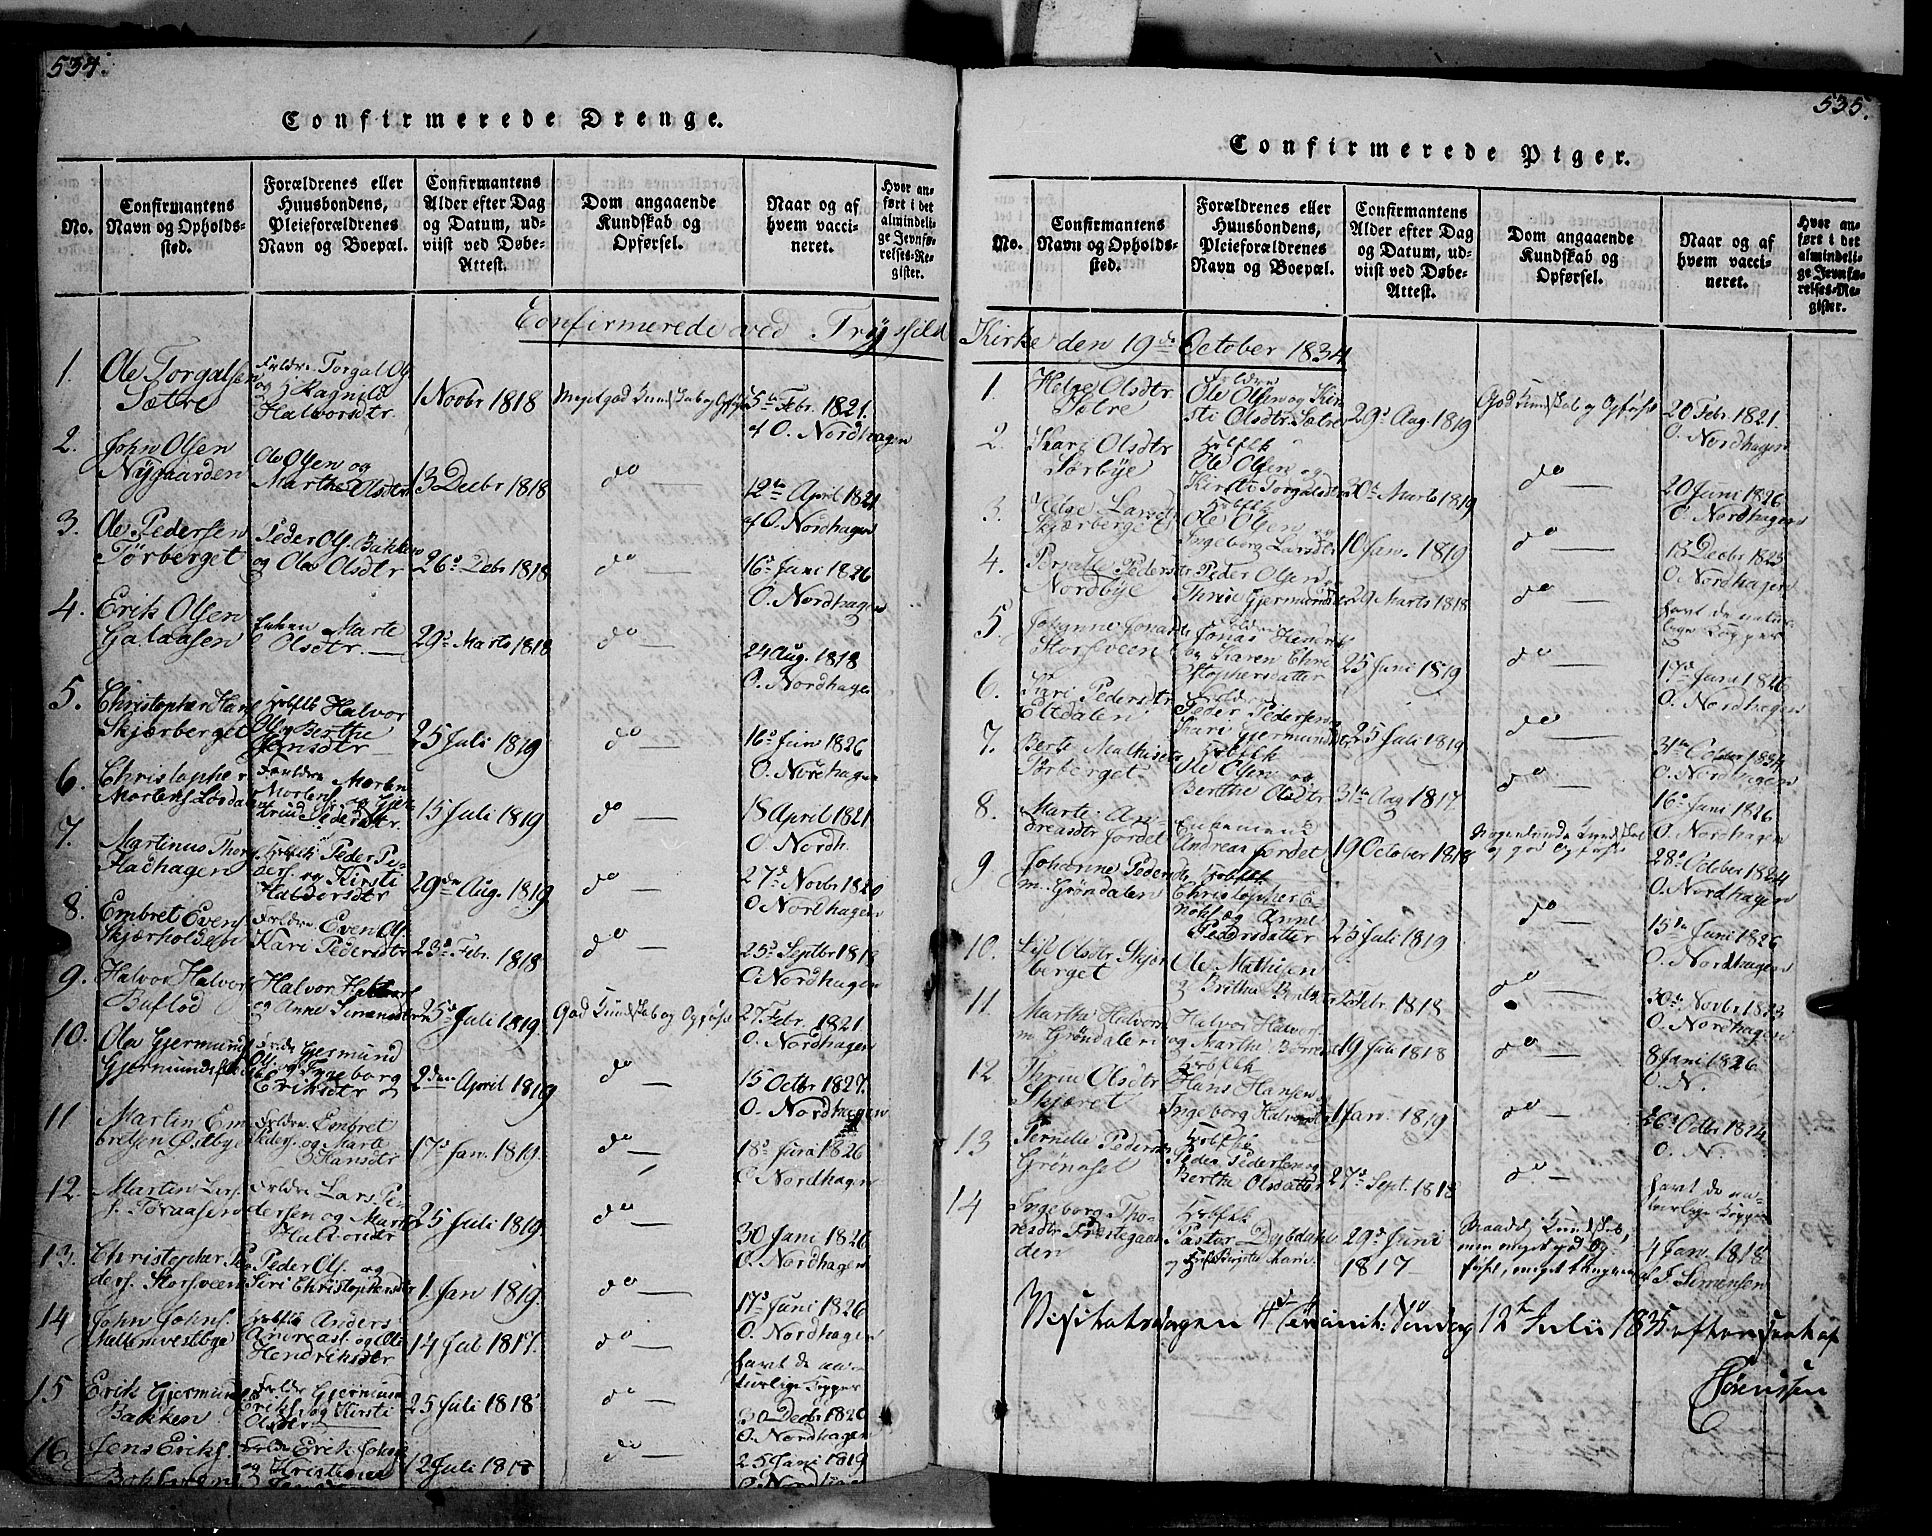 534.
Confirmerede Drenge.
No.
Confirmantens Navn og Opholdssted.
Forældrenes eller Huusbondens, Pleieforældrenes Navn og Boepæl.
Confirmantens Alder efter Dag og Datum, udviist ved Døbe-Attest.
Dom angaaende Kundskab og Opførsel.
Naar og af hvem vaccineret.
Hvor anført i det almindelige Jevnførelses-Register.
Confirmerede ved Trysild
1. Ole Torgalsen Sætre
Torgal Ols og Ragnild Halvorsdtr.
1 Novbr 1818
Meget god Kundskab og Opførs
5te Febr. 1821. af O. Nordhagen
2. John Olsen Nygaarden
Ole Olsen og Marthe Olsdtr
13 Decbr 1818
do —
12te April 1821 af O. Nordhagen
3. Ole Pedersen Tørberget
Peder Ols Bakken og Olea Olsdtr
26de Debr 1818
do —
16de Juni 1826 O. Nordhagen
4. Erik Olsen Galaasen
Enken Marte Olsdtr. —
29de Marts 1818
do —
24 Aug. 1818 O. Nordhagen
5. Christopher Hans Skjærberget
Halvor Ols og Berthe Jensdtr
25 Juli 1819
do —
16de Juni 1826 O. Nordhagen
6. Christopher Mortens
Forældre Morten Mortens og Pedersdtr.
15 Juli 1819
do —
18 April 1821 O. Nordh.
7. Martinus Thors Fladhagen
Peder Peders. og Kirsti Haldersdtr
29de Aug. 1819
do —
27de Novbr 1820 O Nordhagen
8. Embret Evens Skjærholden
Even Ols Kari Pedersdtr
23de Febr. 1818
do —
25de Septbr 1818 O. Nordhagen
9. Halvor Halvors Luflød
Halvor Halvors og Anne Simensdtr
25de Juli 1819
God Kundskab og Opførs
27 Febr. 1821 O. Nordhagen
10. Ole Gjermunds
Gjermund Ols og Ingeborg Eriksdtr
2den April 1819
do —
15 Octbr 1827. O. Nordhagen
11 Martin Embretsen Østbye
Embret Peders. og Marte Hansdtr
17de Jan. 1819.
do —
18de Juni 1826 O Nordhagen
12. Martin Lars.
Lars Pedersen og Marte
25 Juli 1819.
do —
30 Juni 1826 O. Nordhagen
13. Christopher Peders. Storsveen
Peder Ols. og Siri Christophersdtr
1 Jan 1819.
do —
17de Juni 1826 O. Nordhagen
14 John Johns.
Anders Andreas. og Ole Hendriksdtr
14 Juli 1817.
do —
havt de naturlige Kopper
15 Erik Gjermunds Bakken
Gjermund Eriks. og Kirsti Olsdtr
25 Juli 1818
do —
30 Decbr 1820 O. Nordhagen
16. Jens Eriks.
Erik Johns og Kristiane
12 Juli 1818
do —
25 Juni 1819
535.
Confirmerede Piger.
No.
Confirmantens Navn og Opholdssted.
Forældrenes eller Huusbondens, Pleieforældrenes Navn og Boepæl.
Confirmantens Alder efter Dag og Datum, udviist ved Døbe-Attest.
Dom angaaende Kundskab og Opførsel.
Naar og af hvem vaccineret.
Hvor anført i det almindelige Jevnførelses-Register.
Kirke den 19de October 1834
1. Helge Olsdtr Sætre
Ole Olsen og Kirsti Olsdtr. Sætre
29de Aug. 1819
God Kundskab og Opførs
20 Febr. 1821. O. Nordhagen
2. Kari Olsdtr Sørbye
Ole Olsen og Kirsti Torgalsdtr
30te Marts 1819
do —
20 Juni 1826 O. Nordhagen
3. Helge Larsdtr Skjærberget
Ole Olsen og Ingeborg Larsdtr
10 Jan. 1819
do —
13 Decbr 1823 O. Nordhagen
4. Pernelle Pedersdtr Nordbye
Peder Olsen og Thrine Gjermundsdtr
29 Marts 1818
do —
havt de naturlige Kopper
5. Johanne Jonasdtr Storsveen
Jonas Hendrik og Karen Christophersdatter
25 Juni 1819
do —
17de Juni 1826 O. Nordhagen
6. Kari Pedersdtr Eltdalen
Peder Pedersen og Kari Gjermundsdtr
25 Juli 1819
do —
31te Octbr 1834 O. Nordhagen
7. Berte Mathisdtr Tørberget
Ole Olsen og Berthe Olsdtr
31te Aug 1817
do —
16de Juni 1826 O. Nordhagen
8. Marte Andreasdtr. Jordet
Enkemand Andreas Jordet
19 October 1818
Nogenlunde Kundskab og god Opførsel
28de Octber 1824 O. Nordhagen
9 Johanne Pedersdtr m. Grøndalen
Christopher og Anne Pedersdatter
25 Juli 1819
do —
15de Juni 1826 O. Nordhagen
10. Olsdtr Skjærberget
Ole Mathisen Britha
1818
do —
30te Novbr 1823 O. Nordhagen
11. Martha Halvorsd m. Grøndalen
Halvor Halvors. og Marthe
19 Juli 1818
do —
8 Juni 1826 O. N.
12 Thrine Olsdtr Skjæret
Hans Hansen Ingeborg Halvorsdtr
1 Jan. 1819
do —
26de Octbr 1824. O. N.
13 Pernille Pedersdtr Grønoset
Peder Pedersen og Berthe Olsdatter
27de Sept. 1818
do —
havt de naturlige Kopper
14 Ingeborg Thoresdtr Præstegaarden
Pastor Dybdahl
29de Juni 1817
Maadel. Kundskab, men meget god Opførsel,
4 Jan. 1818 af J. Simensen
Visitatsdagen 4de Trinit: Søndag 12te Julii 1835 efterseet af
Sørenssen